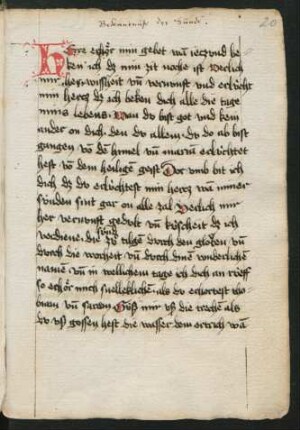 Bekanntnuß der Sünde. 20
Here erhör min gebet wā ietzund be
ken ich dz min zit noche ist Verlich
mir her wissheit vñ vernunft vnd erlücht
min hercz dz ich beken dich alle die tage
mins lebens. Wan du bist got vnd kein
ander on dich. den du allein. du do ab bist
gangen võ dē himel vñ mariam erlüchtet
hest võ dem heiligē geist Dor vmb bit ich
dich dz du erlüchtest min hercz wā miner
sünden sint gar on alle zal Verlich mir
her vernunft gedult vñ küscheit dz ich
verdiene die sünd zů tilgē durch den glouben vñ
durch die worheit vñ durch dinē wunderlichē
namē vñ in wellichem tage ich dich an rüeff
so erhör mich snelleklichē als du erhortest tho
biam vñ saram Güs mir vß die trehē als
du vß gossen hest die wasser dem ertrich wā